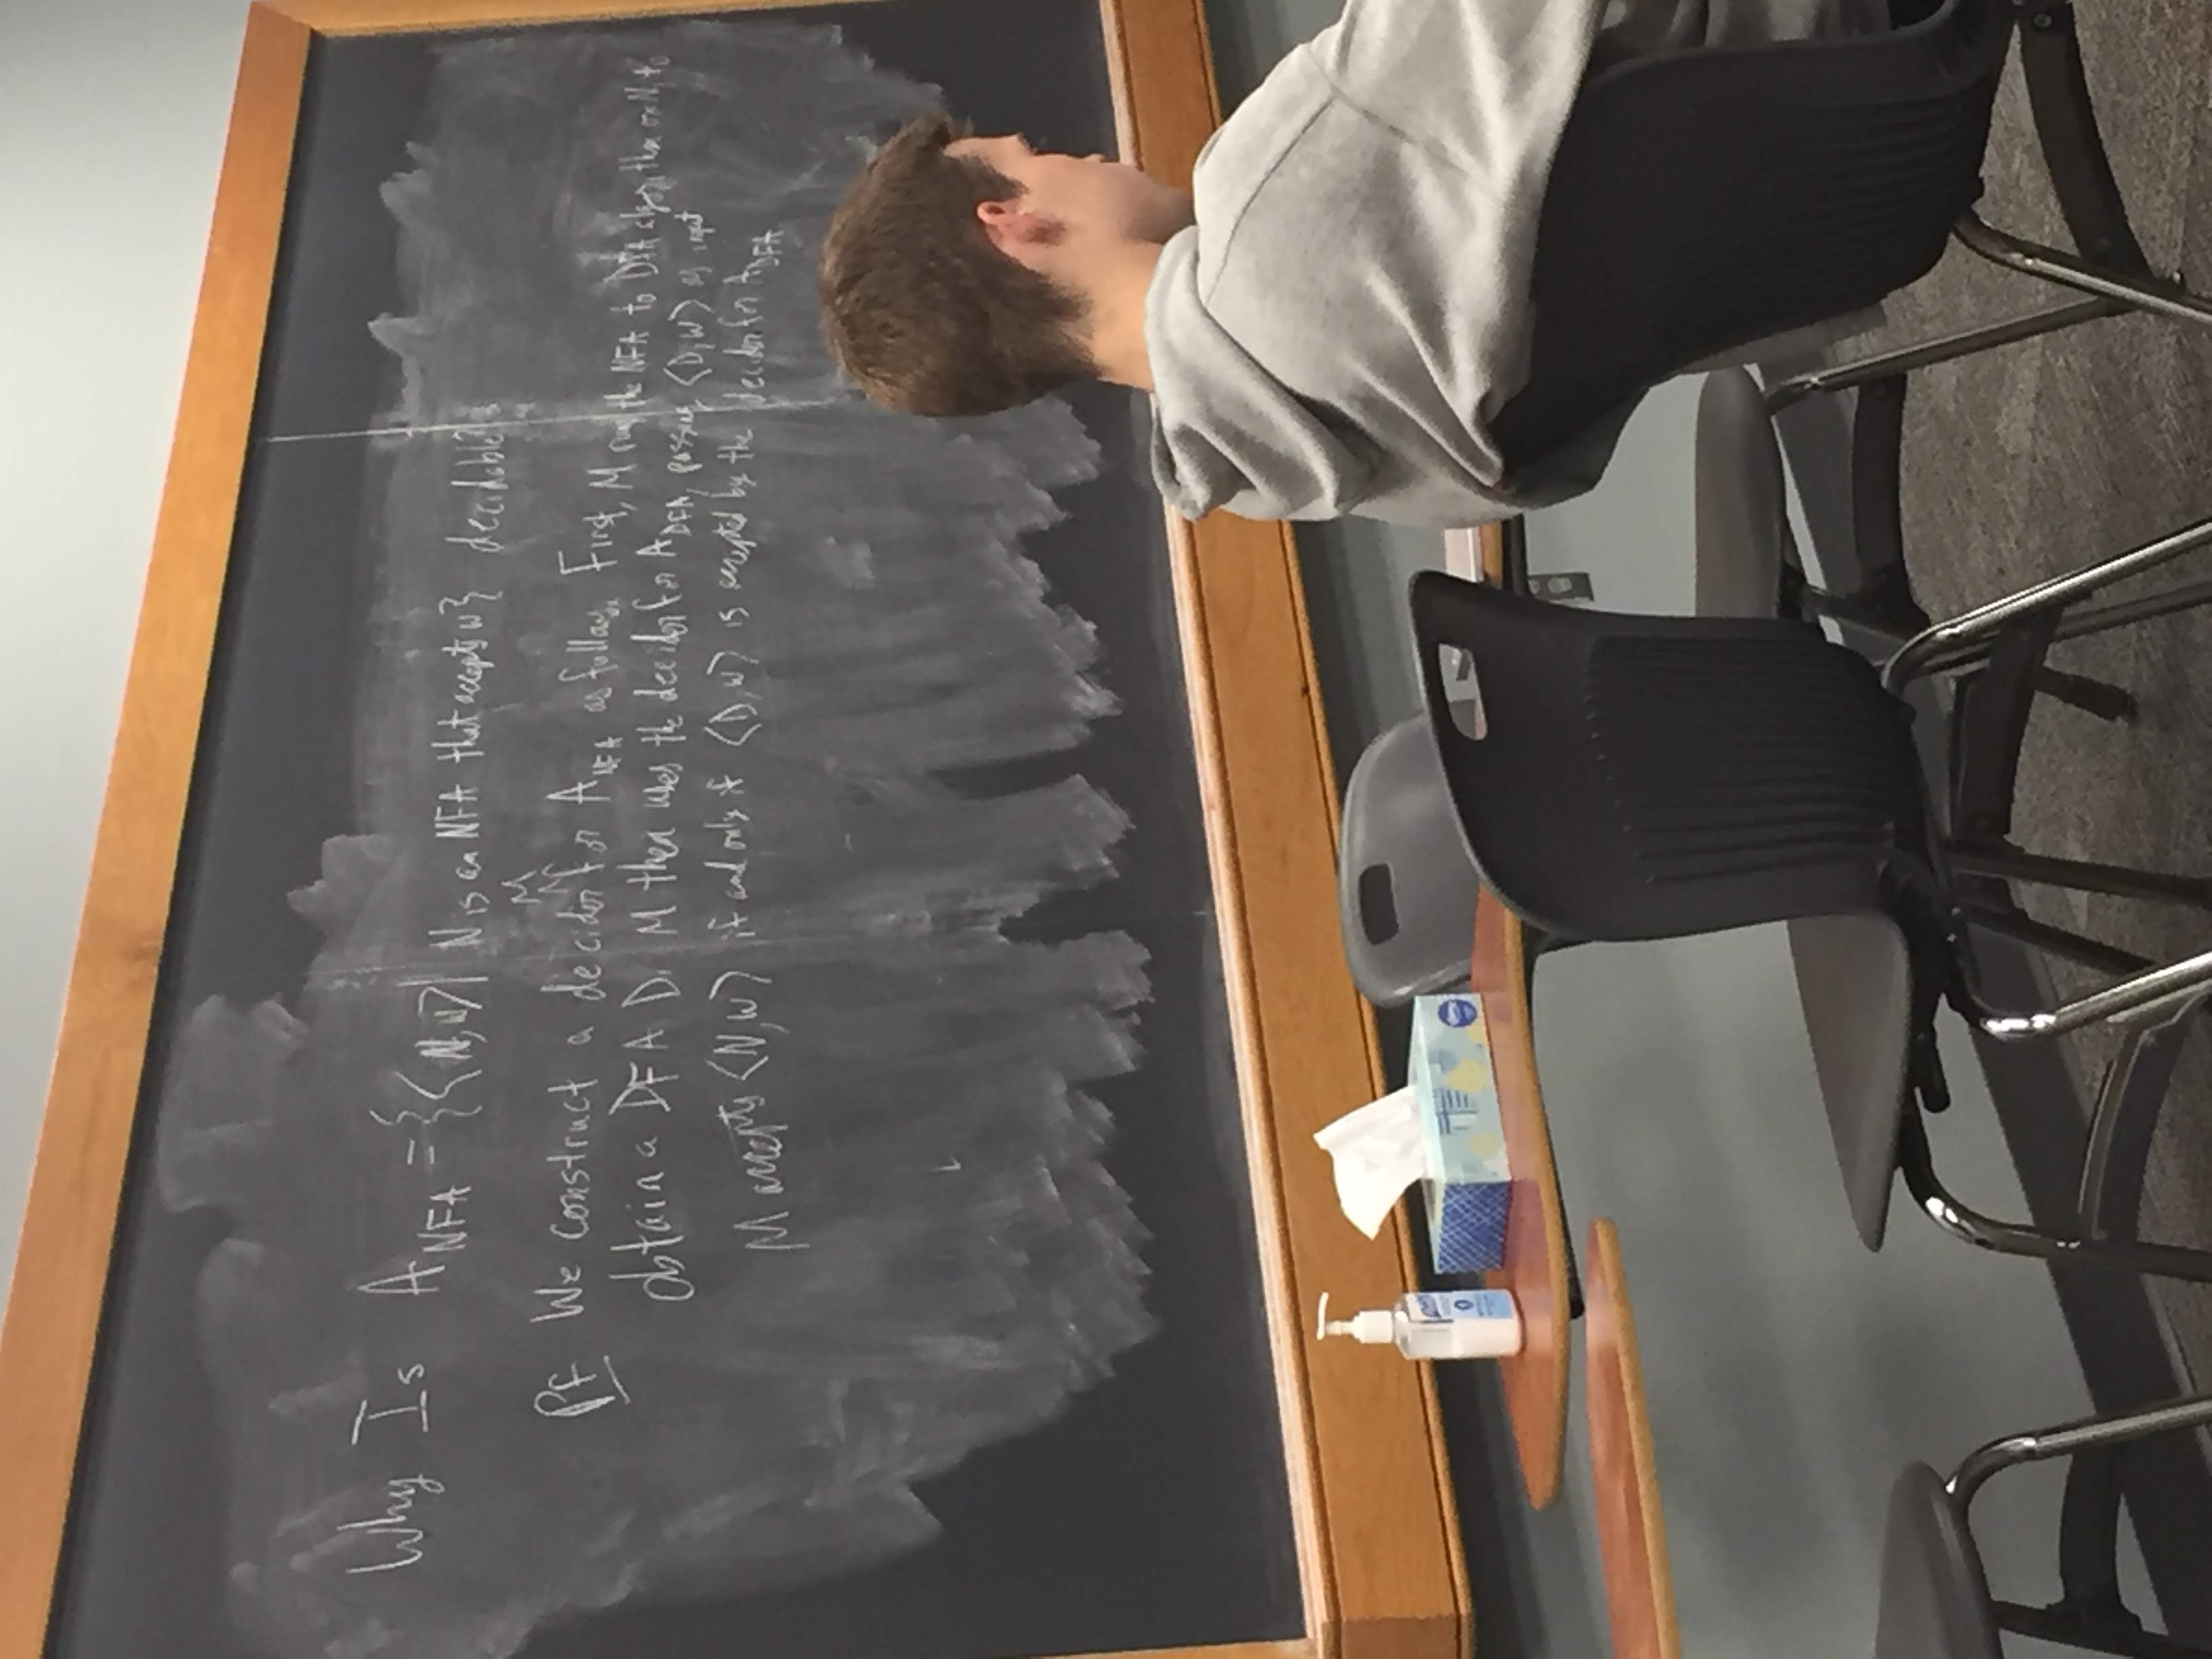 Why Is A_NFA = {⟨N,w⟩| N is an NFA that accepts w} decidable?
M
Pf We construct a decidor ^ for A_NFA as follows. First, M runs the NFA to DFA algorithm on N, to
obtain a DFA D. M then uses the decidor for A_DFA, passing ⟨D,w⟩ as input
M accepts ⟨N,w⟩ if and only if ⟨D,w⟩ is accepted by the decidor for A_DFA
Kleenex